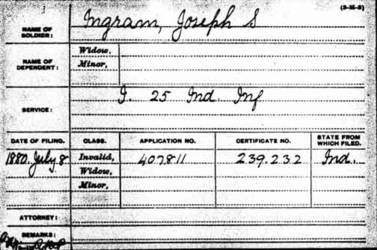 (3-15-3)
NAME OF SOLDIER: Ingram, Joseph S
NAME OF DEPENDENT: Widow,
Minor,
SERVICE: I. 25 Ind Inf
DATE OF FILING. CLASS. APPLICATION NO. CERTIFICATE NO. STATE FROM WHICH FILED.
1880. July. 8 Invalid, 407811 239.232 Ind.
Widow,
Minor,
ATTORNEY:
REMARKS: